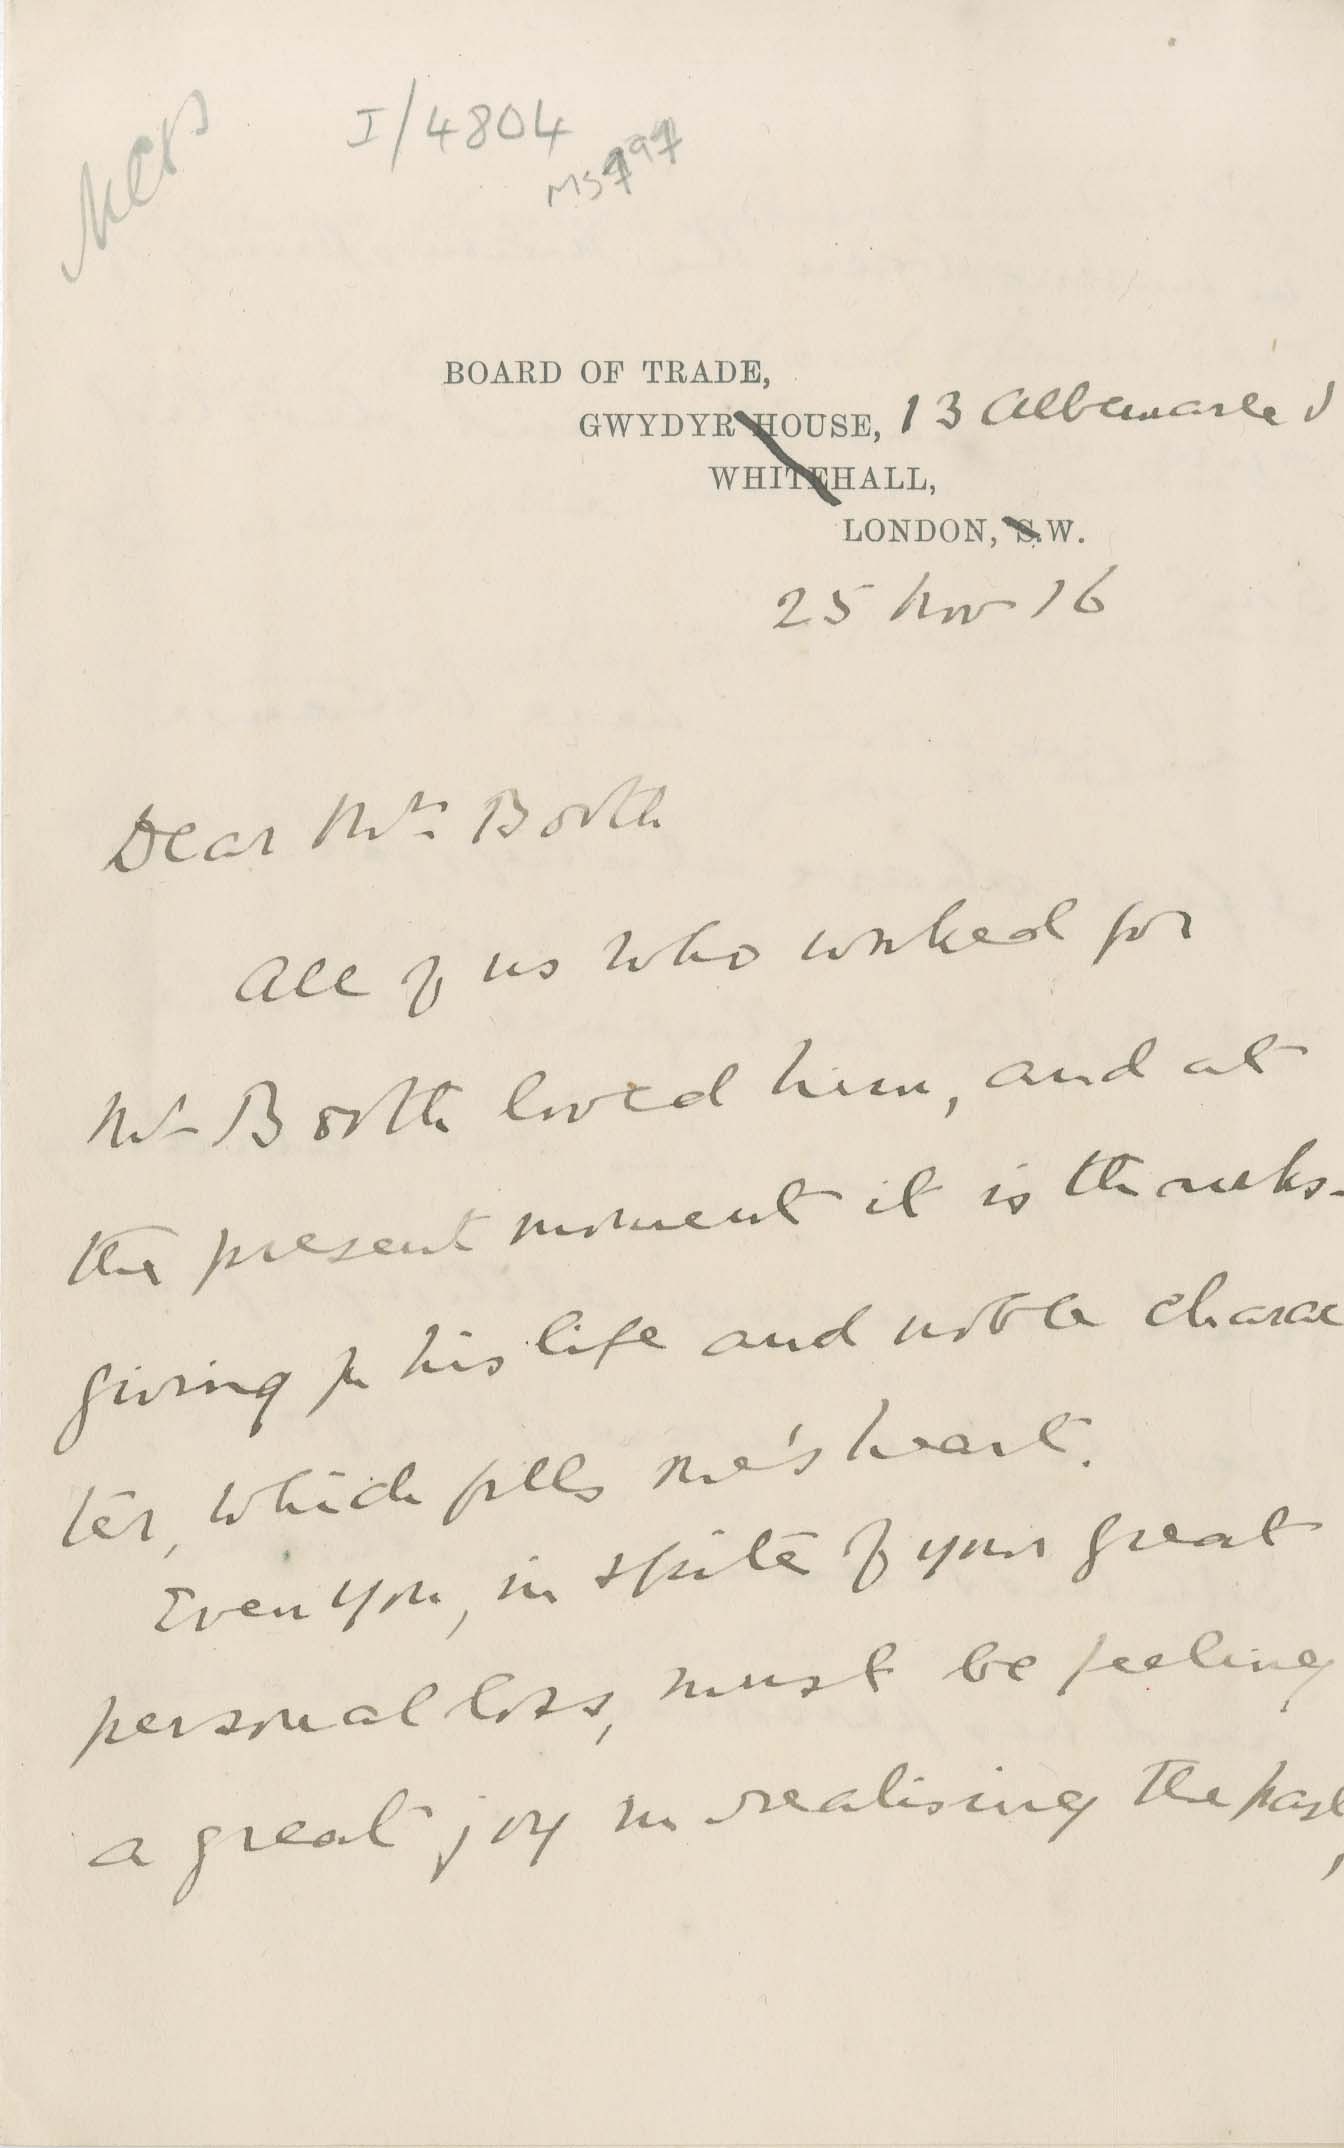 MCB
I/4804
MS797
BOARD OF TRADE,
GWYDYR HOUSE, 13 Albemarle S
WHITEHALL,
LONDON, S.W.
25 Nov 16
Dear Mrs Booth
All of us who worked for
Mr Booth loved him, and at
the present moment it is thanks-
giving for his life and noble charac
ter, which fills one's heart.
Even you, in spite of your great
personal loss, must be feeling
a great joy in realising the past,